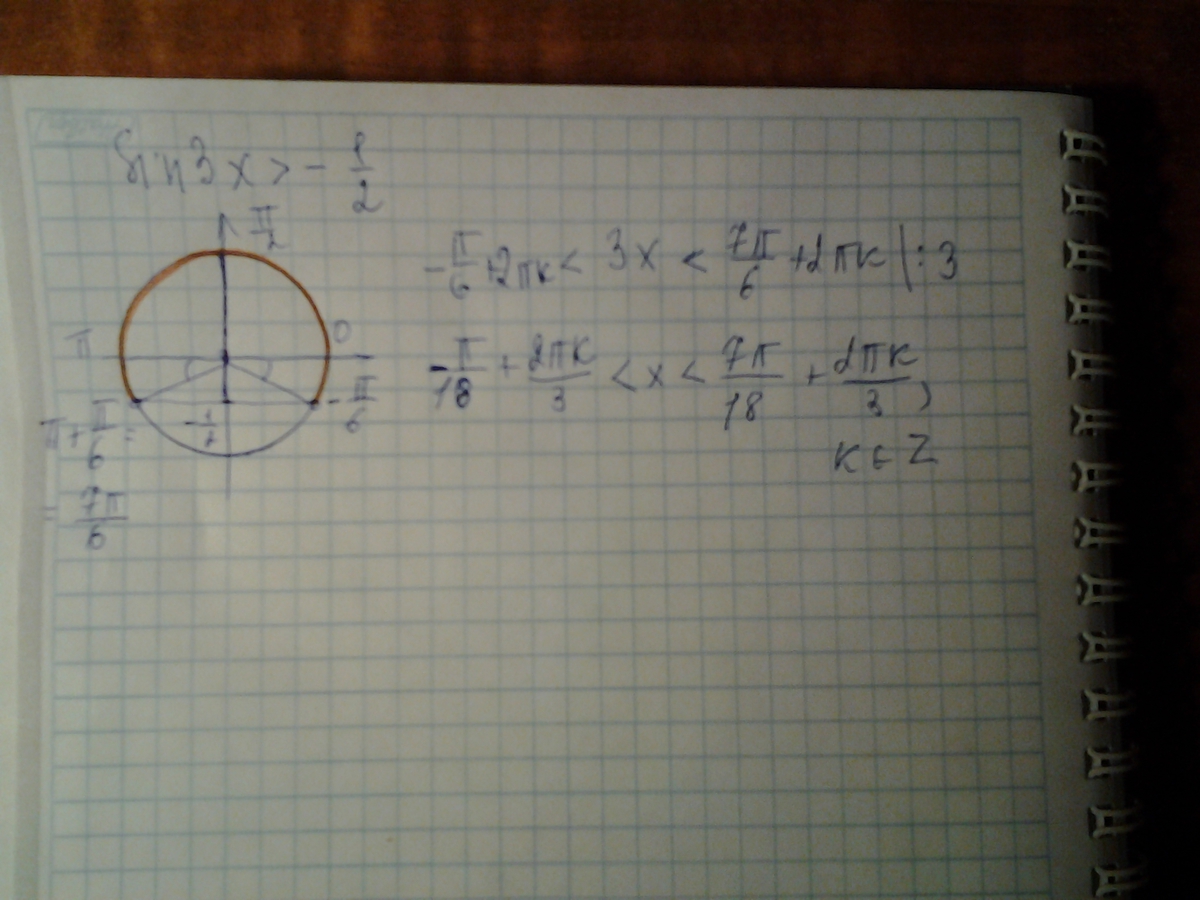 sin 3x > - 1/2
π/2
π
0
- 1/2
- π/6
π + π/6 =
= 7π/6
- π/6 + 2πк < 3x < 7π/6 + 2πк | : 3
- π/18 + 2πк/3 < x < 7π/18 + 2πк/3,
к ∈ Z